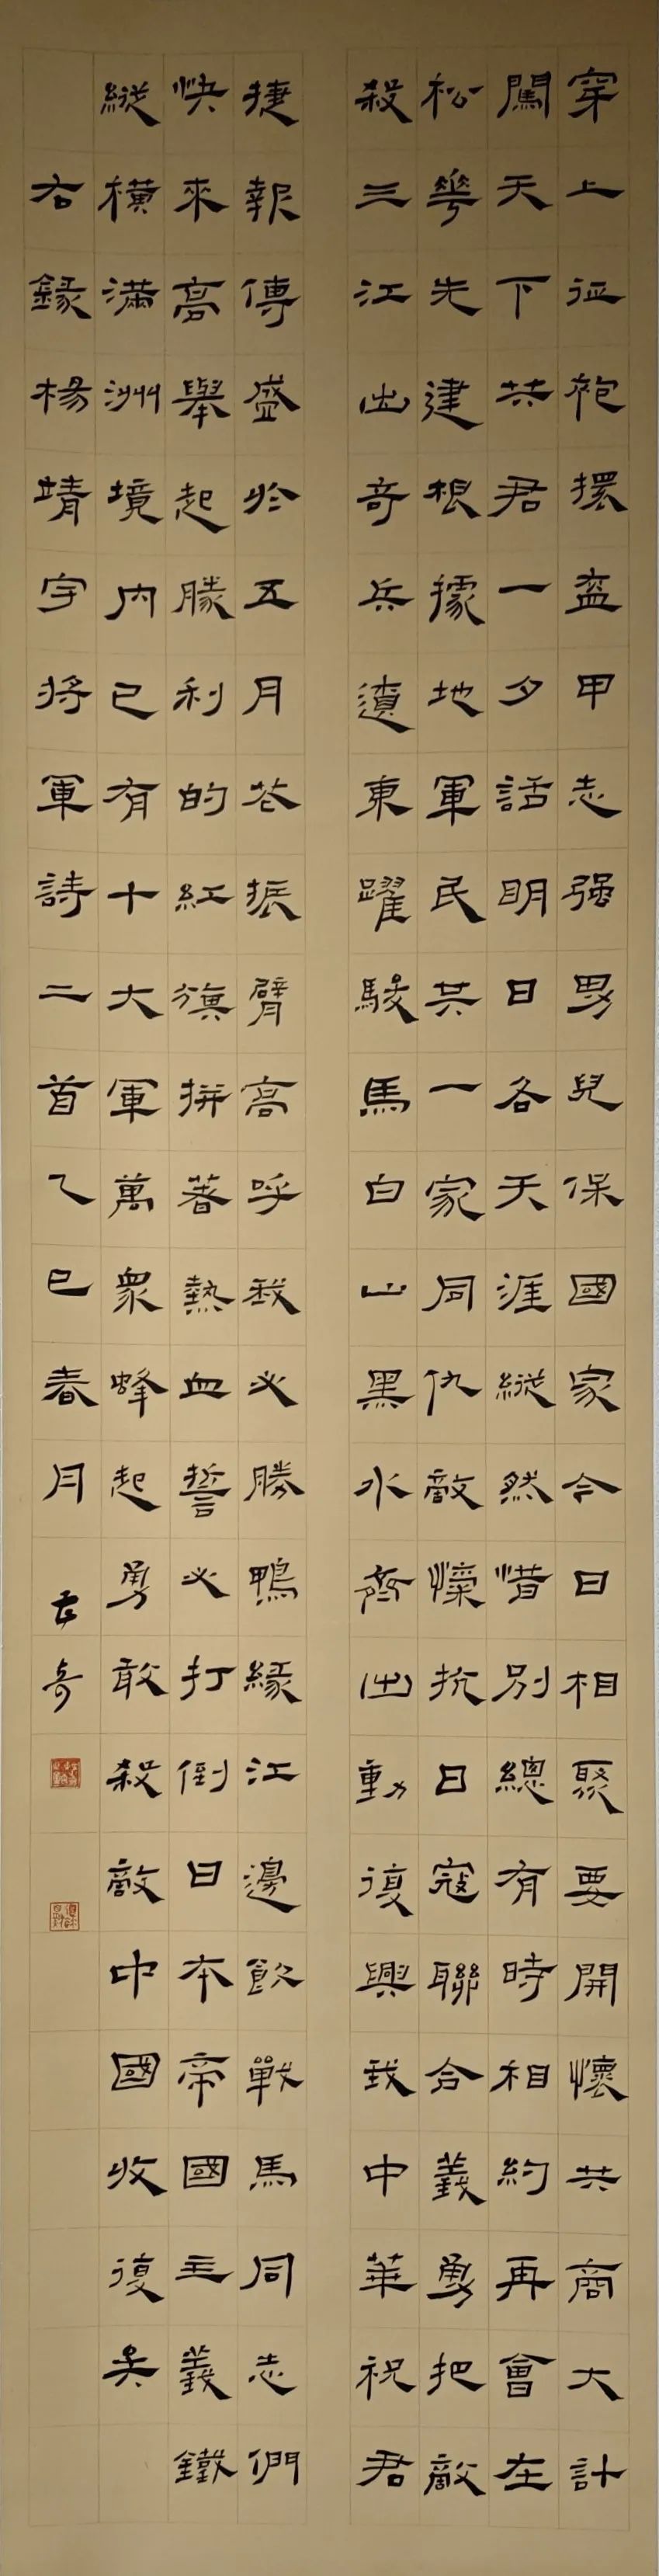 穿上征袍擐盔甲志强男兒保國家今日相聚要開懷共商大計
闖天下共君一夕話明日各天涯縱然惜別總有時相約再會在
松花先建根據地軍民共一家同仇敵愾抗日寇聯合義勇把敵
殺三江出奇兵遼東躍駿馬白山黑水齊出動復興我中華祝君
捷報傳盛於五月花振臂高呼我必勝鴨綠江邊飲戰馬同志們
快來高舉起勝利的紅旗拼著熱血誓必打倒日本帝國主義鐵
縱橫滿洲境內已有十大軍萬眾蜂起勇敢殺敵中國收復矣
右錄楊靖宇將軍詩二首乙巳春月